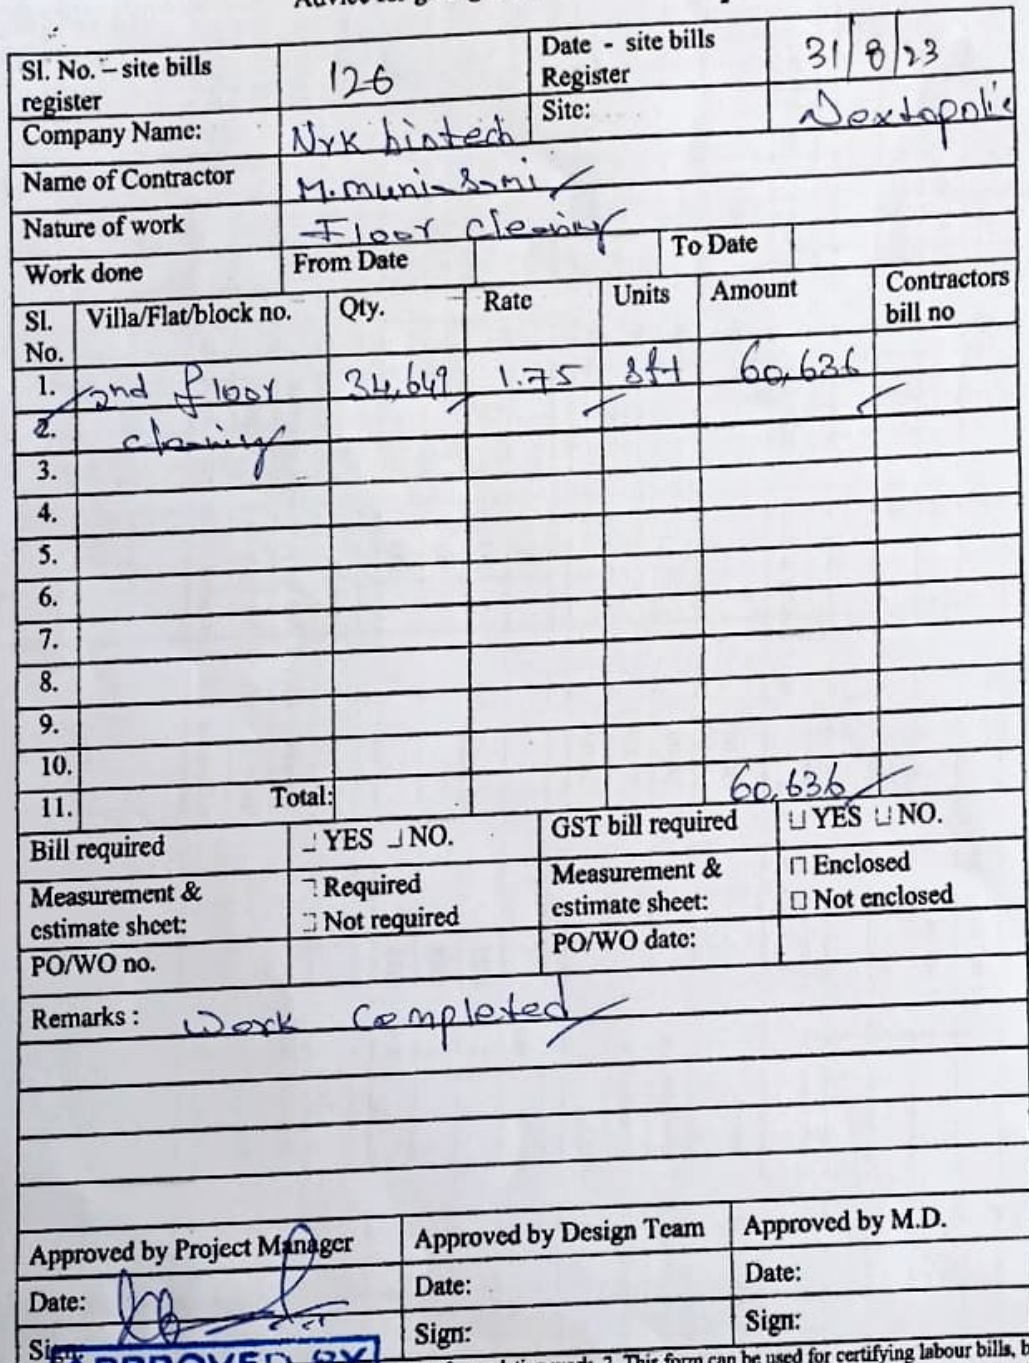 Sl. No. – site bills register 126 Date - site bills Register 31/8/23
Company Name: NVK biotech Site: Nextopolis
Name of Contractor M. muni
Nature of work Floor cleaning
Work done From Date To Date
Sl. No. Villa/Flat/block no. Qty. Rate Units Amount Contractors bill no
1. 2nd floor 34,649 1.75 sft 60,636
2. cleaning
3.
4.
5.
6.
7.
8.
9.
10.
11. Total: 60,636
Bill required YES NO. GST bill required YES NO.
Measurement & estimate sheet: Required Not required Measurement & estimate sheet: Enclosed Not enclosed
PO/WO no. PO/WO date:
Remarks : Work Completed
Approved by Project Manager Approved by Design Team Approved by M.D.
Date: Date: Date:
Sign: Sign: Sign:
APPROVED BY
2. This form can be used for certifying labour bills,